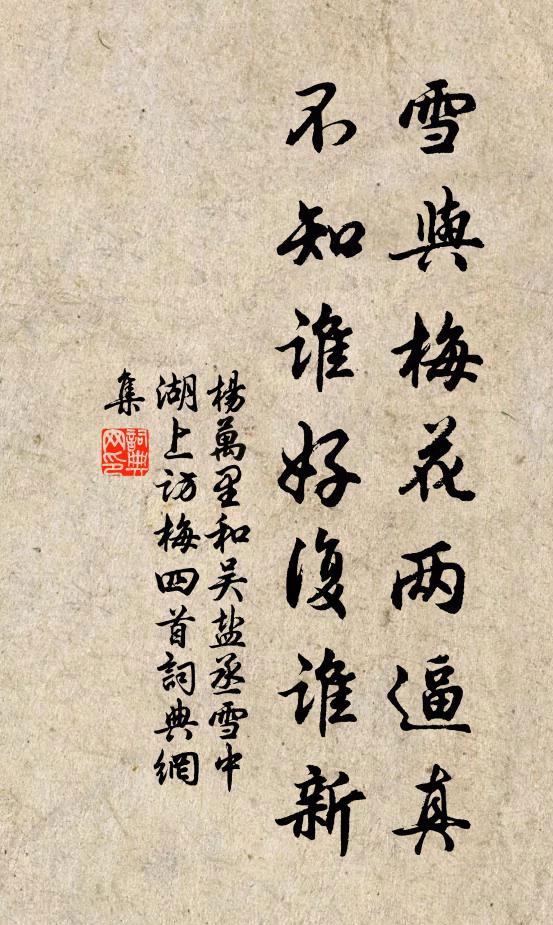 雪與梅花两逼真
不知谁好復谁新
楊萬里和吴盐丞雪中
湖上访梅四首詞典網
集
詞典
网印